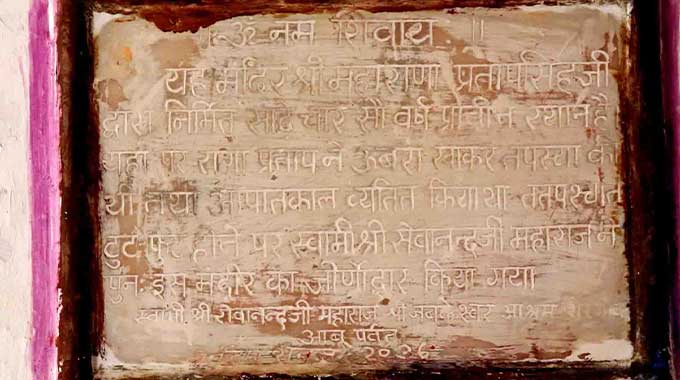 ॥ ॐ नम शिवाय ॥
यह मंदिर श्री महाराणा प्रतापसिंहजी
द्वारा निर्मित साढे चार सौ वर्ष प्राचीन स्थान है
यहा पर राणा प्रताप ने ऊबरा खाकर तपस्या की
थी तथा आपातकाल व्यतित किया था ततपश्चात
टुट फुट होने पर स्वामी श्री सेवानन्दजी महाराज ने
पुनः इस मंदीर का जीर्णोद्वार किया गया
स्वामी श्री सेवानन्दजी महाराज श्री जबकेश्वर आश्रम
आबु पर्वत